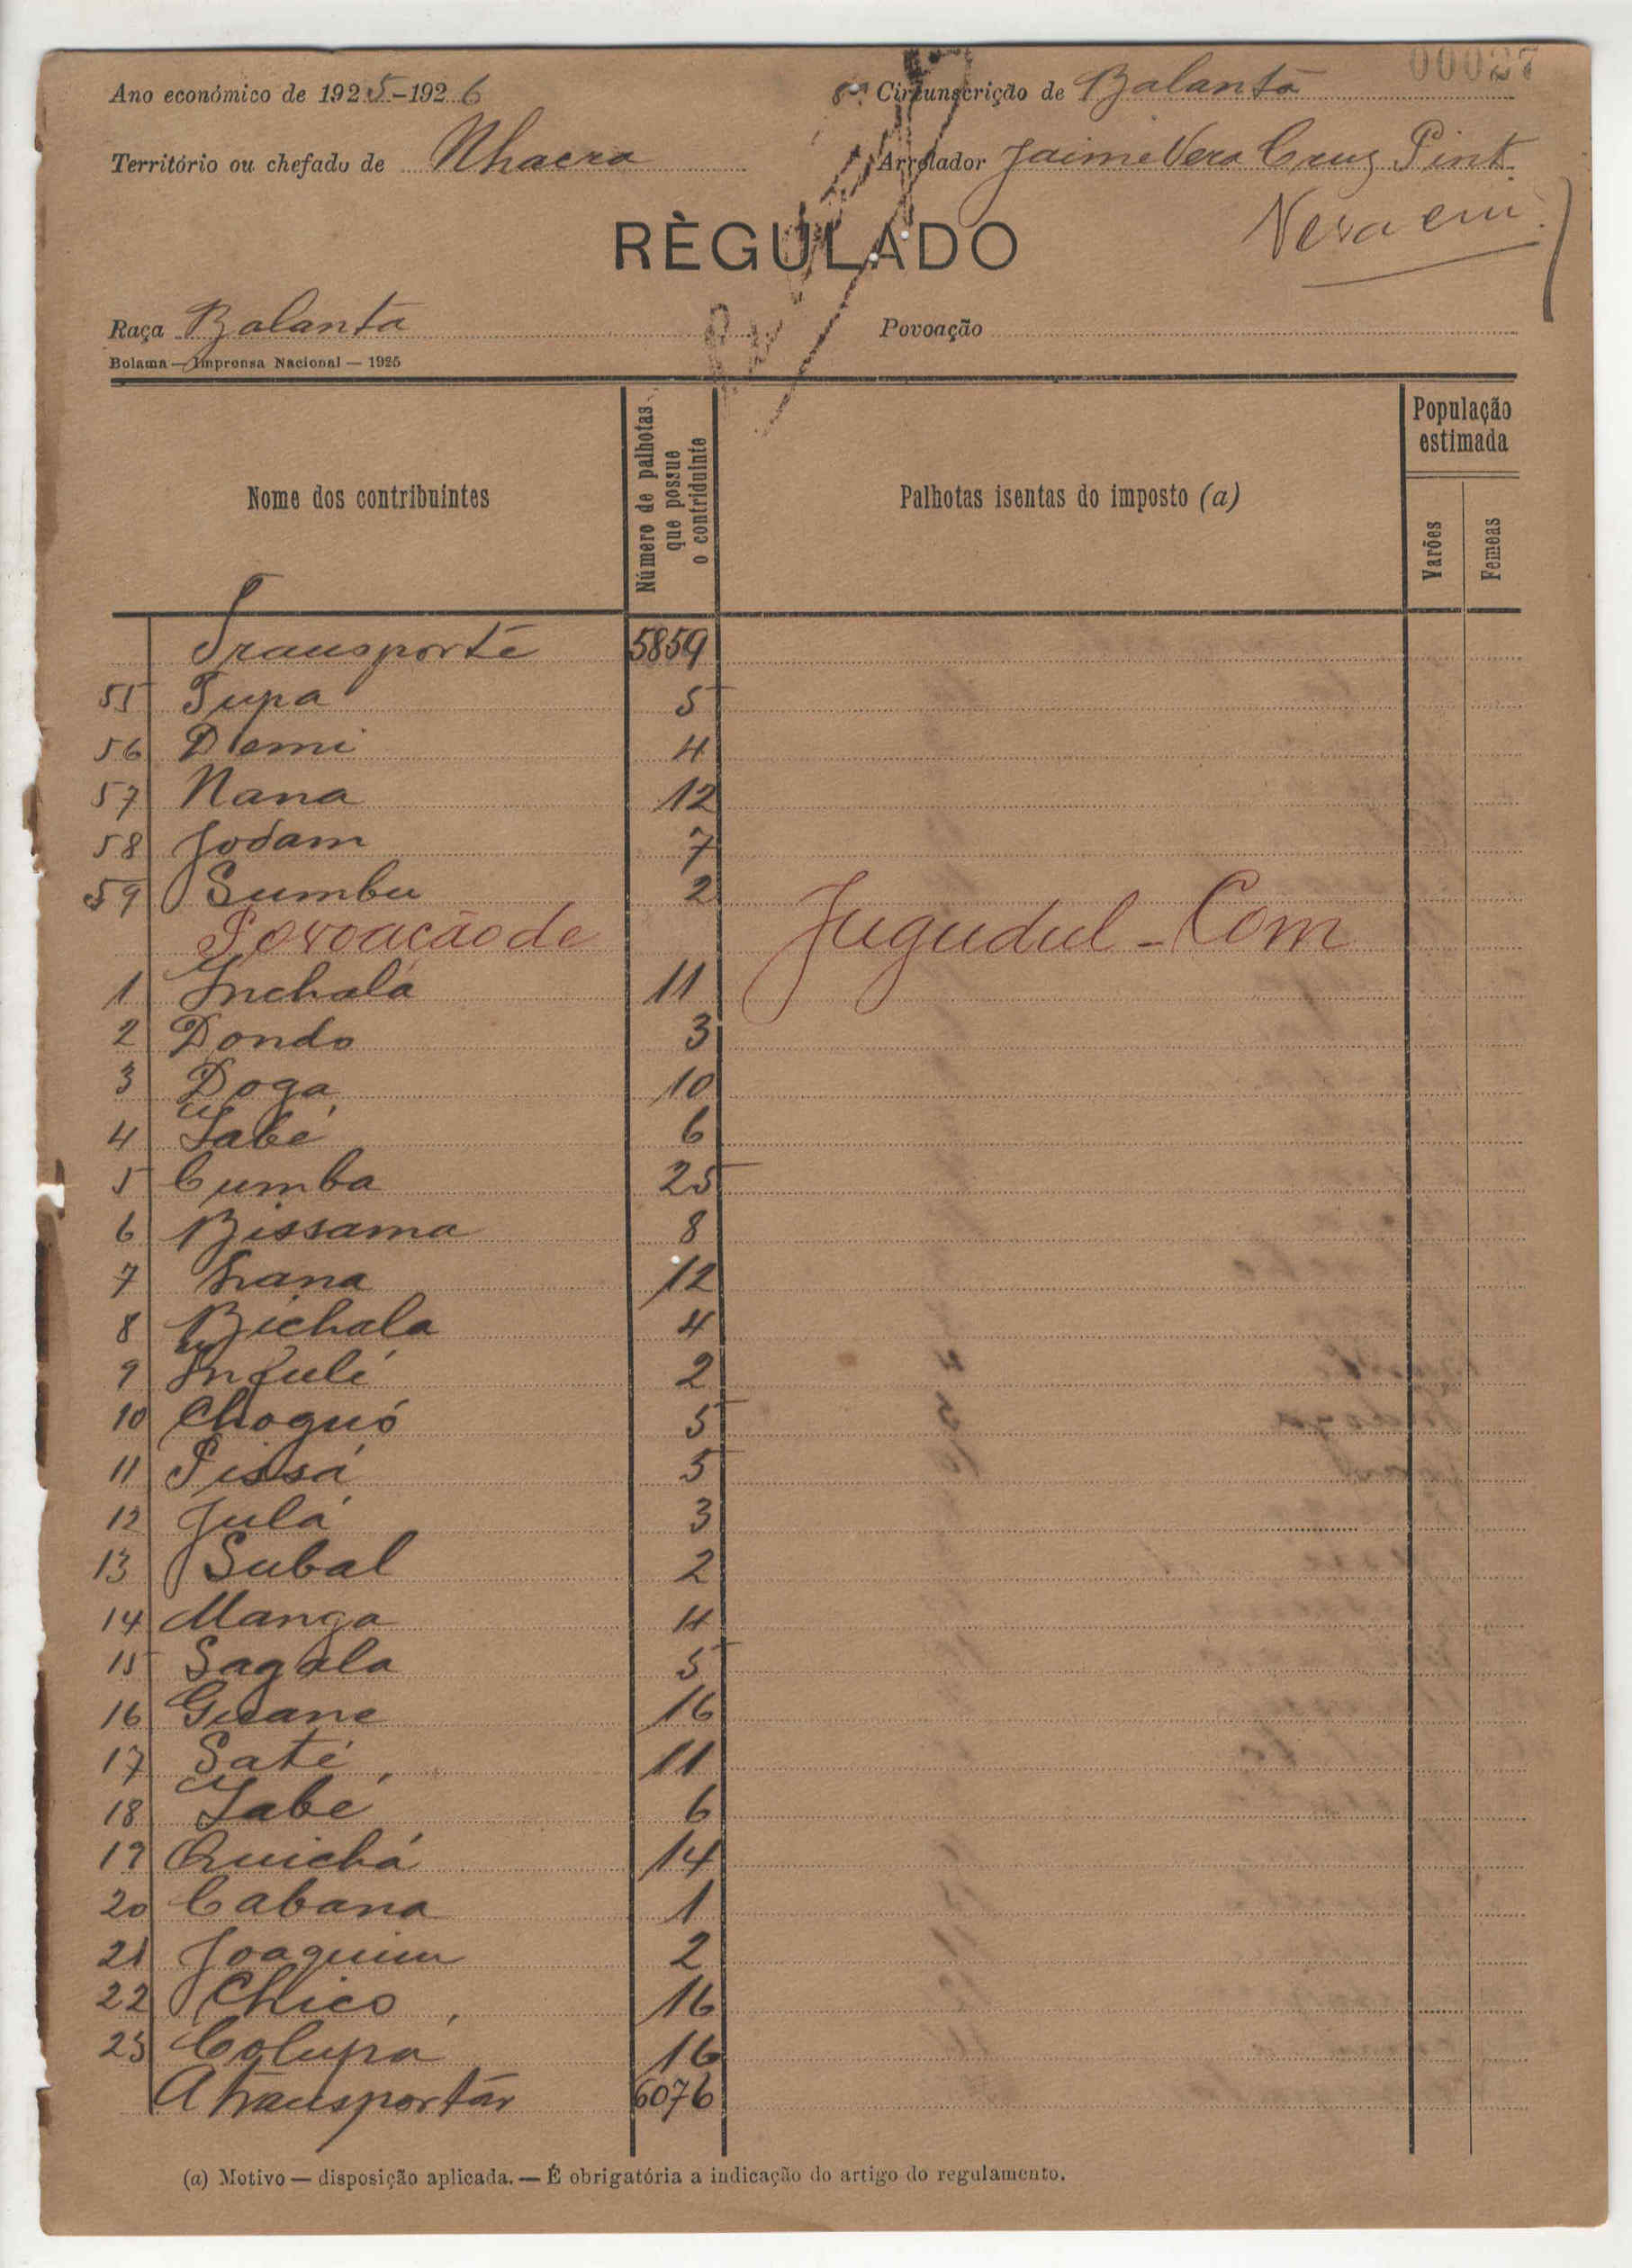 00027
Ano económico de 1925-1926
Circunscrição de Balanta
Território ou chefado de Nhacra
Arrolador Jaime Vera Cruz Pint
RÈGULADO
Raça Balanta
Povoação
Bolama — Imprensa Nacional — 1925
Nome dos contribuintes
Número de palhotas que possue o contriduinte
Palhotas isentas do imposto (a)
População estimada
Varões
Femeas
Transporte 5859
55 Tupa 5
56 Demi 4
57 Nana 12
58 Jodam 7
59 Sumbu 2
Povoação de Jugudul - Com
1 Inchalá 11
2 Dondo 3
3 Doga 10
4 Tabé 6
5 Cumba 25
6 Bissama 8
7 hana 12
8 Bichala 4
9 Infulé 2
10 Choguó 5
11 Pissá 5
12 Julá 3
13 Subal 2
14 Manga 4
15 Sagala 5
16 Guane 16
17 Saté 11
18 Tabé 6
19 Quichá 14
20 Cabana 1
21 Joaquim 2
22 Chico 16
23 Colupa 16
A transportar 6076
(a) Motivo — disposição aplicada. — É obrigatória a indicação do artigo do regulamento.